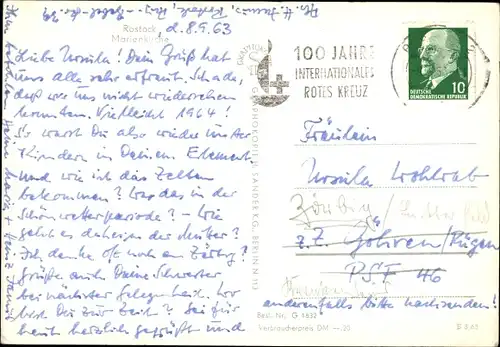 Rostock
Marienkirche
d. 8.9.63
Liebe Ursula! Dein Gruß hat
uns alle sehr erfreut. Schade
daß wir uns nicht wiedersehen
konnten. Vielleicht 1964!
So warst Du also wieder unter
Kindern in Deinem Element
und wie ist das Zelten
bekommen? War das in der
Schönwetterperiode? – Wie
geht es daheim der Mutter?
Ich denke oft noch an
Grüße auch Deine Schwester
bei nächster Gelegenheit. Wo
bist Du zur Zeit? Sei für
heute herzlich gegrüßt und
GRAPHOKOPIE H. SANDER KG, BERLIN N 113
100 JAHRE
INTERNATIONALES
ROTES KREUZ
10
DEUTSCHE
DEMOKRATISCHE REPUBLIK
Fräulein
Ursula Wohlrab
z.Z. Göhren/Rügen
PSF 46
anderenfalls bitte nachsenden!
Best.-Nr. G 4832
Verbraucherpreis DM —,20